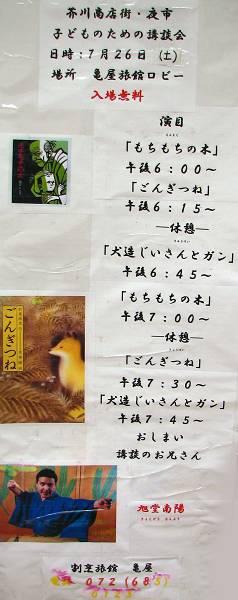 芥川商店街・夜市
子どものための講談会
日時：7月26日（土）
場所　亀屋旅館ロビー
入場無料
演目
「もちもちの木」
午後6：00〜
「ごんぎつね」
午後6：15〜
―休憩―
「犬造じいさんとガン」
午後6：45〜
「もちもちの木」
午後7：00〜
―休憩―
「ごんぎつね」
午後7：30〜
「犬造じいさんとガン」
午後7：45〜
おしまい
講談のお兄さん
モチモチの木
ごんぎつね
旭堂南陽
きょくどう　なんよう
割烹旅館　亀屋
072（685）